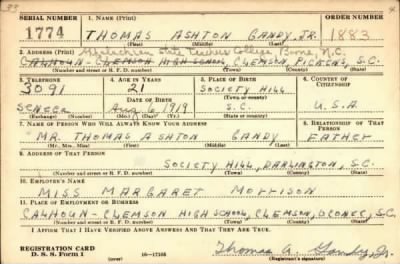 SERIAL NUMBER 1. NAME (Print) ORDER NUMBER
1774 THOMAS ASHTON GANDY JR. 1883
(First) (Middle) (Last)
2. ADDRESS (Print) Appalachian State Teachers College, Boone, N.C.
CALHOUN-CLEMSON HIGH SCHOOL, CLEMSON, PICKENS, S.C.
(Number and street or R. F. D. number) (Town) (County) (State)
3. TELEPHONE 4. AGE IN YEARS 5. PLACE OF BIRTH 6. COUNTRY OF CITIZENSHIP
3091 21 SOCIETY HILL
DATE OF BIRTH (Town or county)
SENECA Aug 6 1919 S.C. U.S.A.
(Exchange) (Number) (Mo.) (Day) (Yr.) (State or country)
7. NAME OF PERSON WHO WILL ALWAYS KNOW YOUR ADDRESS 8. RELATIONSHIP OF THAT PERSON
MR. THOMAS ASHTON GANDY FATHER
(Mr., Mrs., Miss) (First) (Middle) (Last)
9. ADDRESS OF THAT PERSON
SOCIETY HILL, DARLINGTON, S.C.
(Number and street or R. F. D. number) (Town) (County) (State)
10. EMPLOYER'S NAME
MISS MARGARET MORRISON
11. PLACE OF EMPLOYMENT OR BUSINESS
CALHOUN-CLEMSON HIGH SCHOOL, CLEMSON, OCONEE, S.C.
(Number and street or R. F. D. number) (Town) (County) (State)
I AFFIRM THAT I HAVE VERIFIED ABOVE ANSWERS AND THAT THEY ARE TRUE.
REGISTRATION CARD
D. S. S. Form 1 16-17105 Thomas A. Gandy, Jr.
(over) (Registrant's signature)